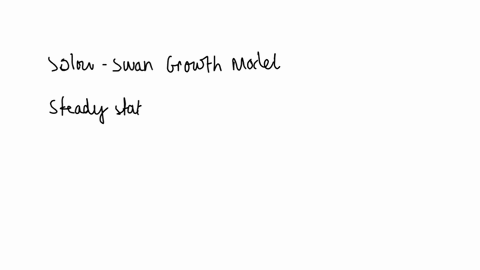 Solow - Swan Growth Model
Steady stat